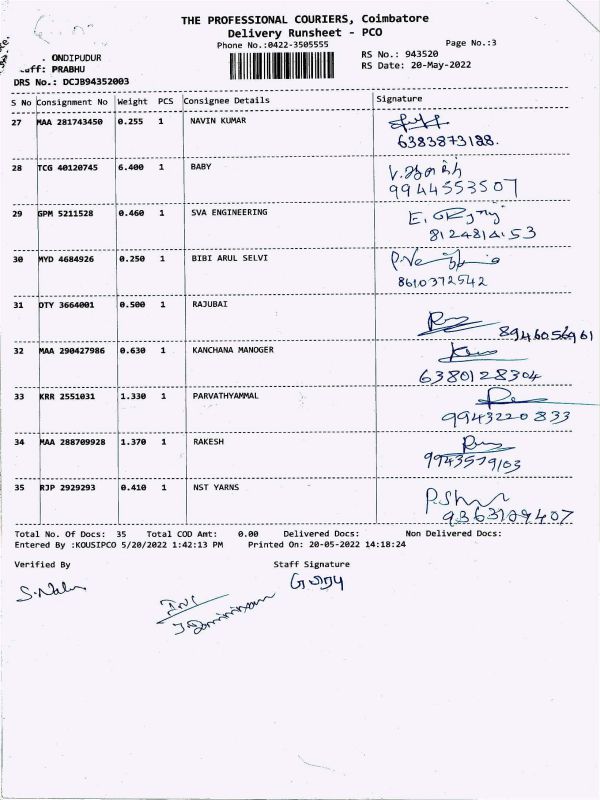 THE PROFESSIONAL COURIERS, Coimbatore
Delivery Runsheet - PCO
Phone No.:0422-3505555
Page No.:3
RS No.: 943520
RS Date: 20-May-2022
ONDIPUDUR
PRABHU
DRS No.: DCJB94352003
S No Consignment No Weight PCS Consignee Details Signature
27 MAA 281743450 0.255 1 NAVIN KUMAR
6383873188.
28 TCG 40120745 6.400 1 BABY
9944553507
29 GPM 5211528 0.460 1 SVA ENGINEERING
8124814153
30 MYD 4684926 0.250 1 BIBI ARUL SELVI
8610372542
31 DTY 3664001 0.500 1 RAJUBAI
8946056961
32 MAA 290427986 0.630 1 KANCHANA MANOGER
6380128304
33 KRR 2551031 1.330 1 PARVATHYAMMAL
9943220833
34 MAA 288709928 1.370 1 RAKESH
9943579103
35 RJP 2929293 0.410 1 NST YARNS
9363109407
Total No. Of Docs: 35 Total COD Amt: 0.00 Delivered Docs: Non Delivered Docs:
Entered By :KOUSIPCO 5/20/2022 1:42:13 PM Printed On: 20-05-2022 14:18:24
Verified By Staff Signature